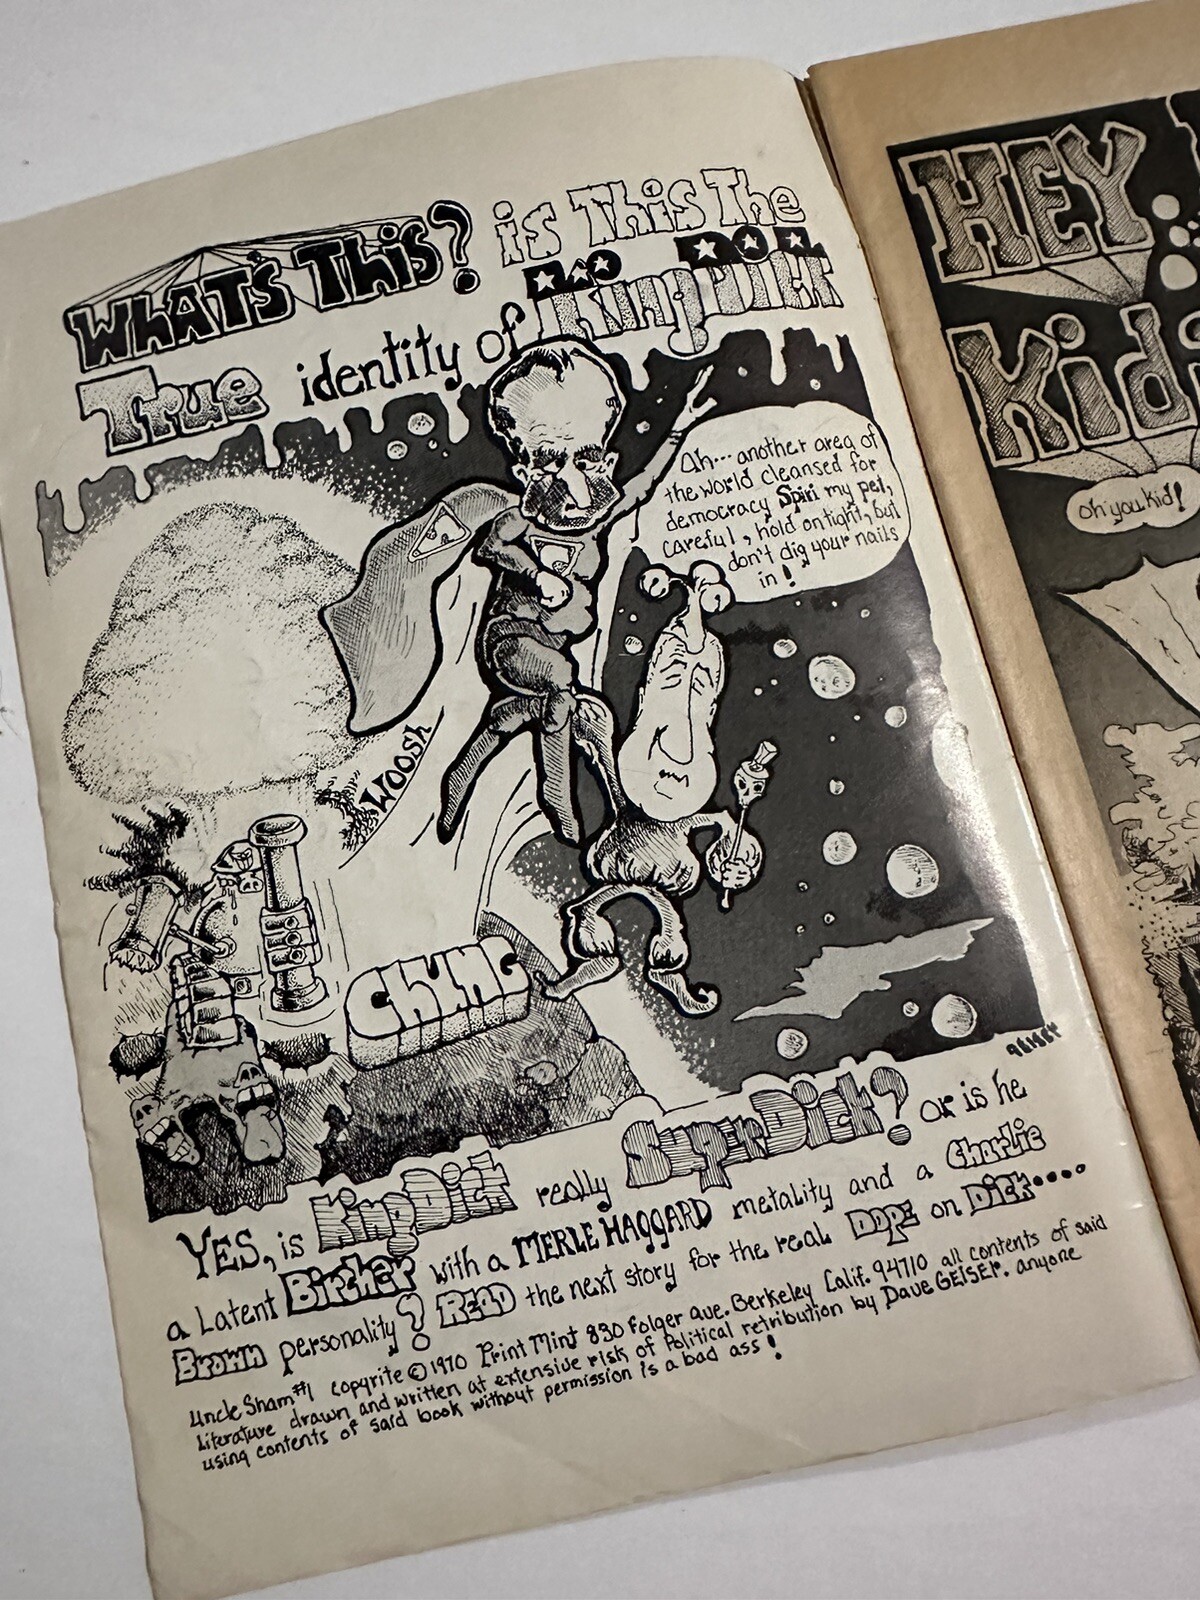 WHAT'S THIS? is This The
True identity of King Dick
Ah... another area of
the world cleansed for
democracy Spiri my pet,
careful, hold on tight, but
don't dig your nails
in!
WOOSH
CHUNG
geiser
YES, is King Dick really Super Dick? or is he
a Latent Bircher with a MERLE HAGGARD metality and a Charlie
Brown personality? READ the next story for the real DOPE on DICK....
Uncle Sham #1 copyrite © 1970 Print Mint 830 Folger ave. Berkeley Calif. 94710 all contents of said
Literature drawn and written at extensive risk of Political retribution by Dave GEISER. anyone
using contents of said book without permission is a bad ass!
HEY
Kids
oh you kid!